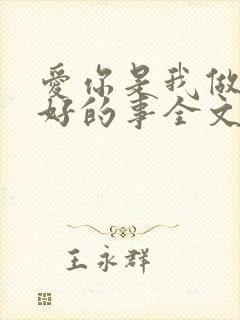 爱你是我做
好的事全文
王永群